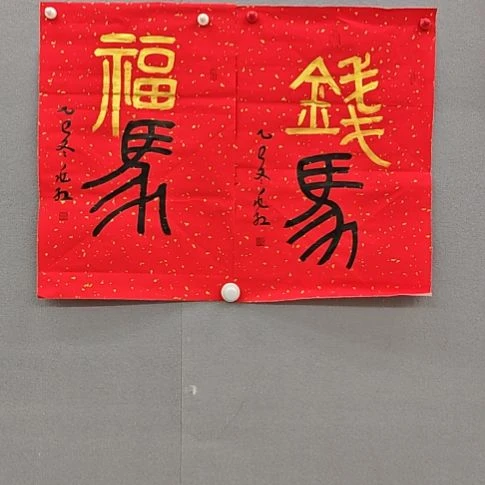 福
馬
乙巳冬
錢
馬
乙巳冬